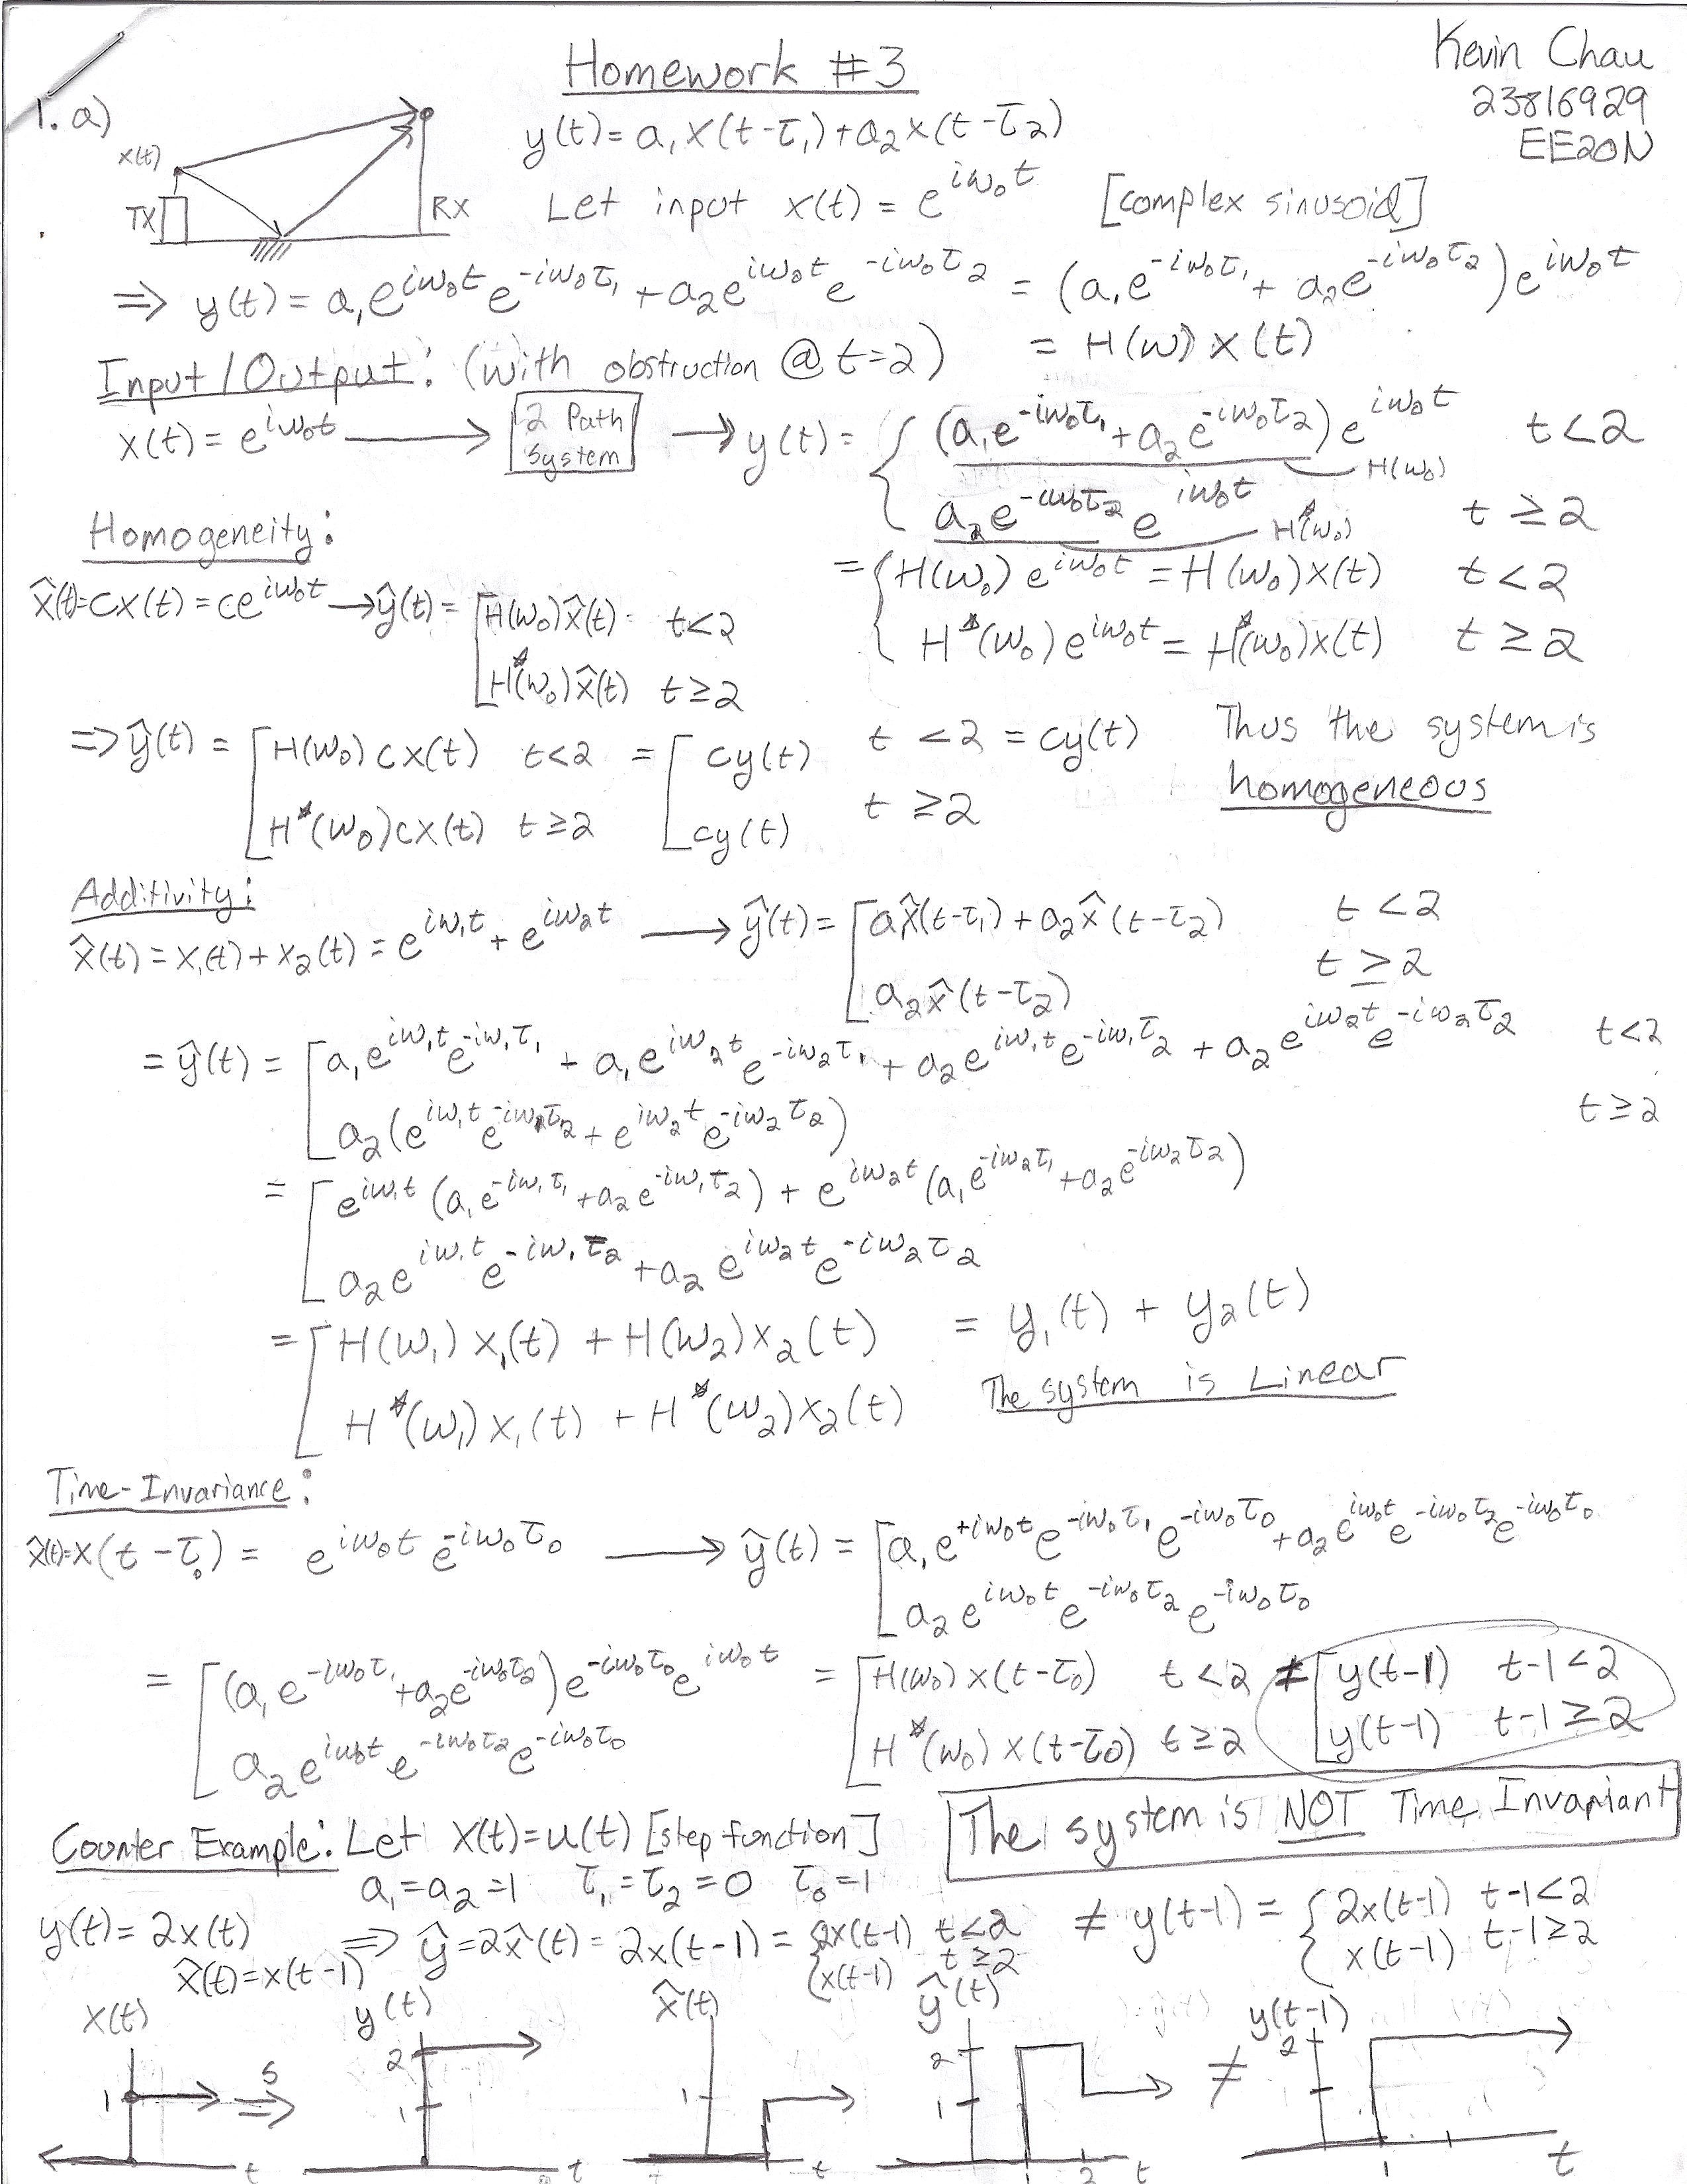 Homework #3
Kevin Chau
23816929
EE20N
1. a)
x(t)
TX
RX
y(t) = a₁x(t-τ₁) + a₂x(t-τ₂)
Let input x(t) = e^{iω₀t} [complex sinusoid]
⇒ y(t) = a₁e^{iω₀t}e^{-iω₀τ₁} + a₂e^{iω₀t}e^{-iω₀τ₂} = (a₁e^{-iω₀τ₁} + a₂e^{-iω₀τ₂})e^{iω₀t}
= H(ω) x(t)
Input/Output: (with obstruction @ t=2)
x(t) = e^{iω₀t} → 2 Path System → y(t) = { (a₁e^{-iω₀τ₁} + a₂e^{-iω₀τ₂})e^{iω₀t} t<2
H(ω₀)
a₂e^{-iω₀τ₂} e^{iω₀t} t ≥ 2
H*(ω₀)
= { H(ω₀) e^{iω₀t} = H(ω₀)x(t) t < 2
H*(ω₀) e^{iω₀t} = H*(ω₀)x(t) t ≥ 2
Homogeneity:
x̂(t) = cx(t) = ce^{iω₀t} → ŷ(t) = [ H(ω₀)x̂(t) t<2
H*(ω₀)x̂(t) t≥2
⇒ ŷ(t) = [ H(ω₀)cx(t) t<2 = [ cy(t) t < 2 = cy(t) Thus the system is
H*(ω₀)cx(t) t≥2 cy(t) t ≥ 2 homogeneous
Additivity:
x̂(t) = x₁(t) + x₂(t) = e^{iω₁t} + e^{iω₂t} → ŷ(t) = [ ax̂(t-τ₁) + a₂x̂(t-τ₂) t < 2
a₂x̂(t-τ₂) t ≥ 2
= ŷ(t) = [ a₁e^{iω₁t}e^{-iω₁τ₁} + a₁e^{iω₂t}e^{-iω₂τ₁} + a₂e^{iω₁t}e^{-iω₁τ₂} + a₂e^{iω₂t}e^{-iω₂τ₂} t<2
a₂(e^{iω₁t}e^{-iω₁τ₂} + e^{iω₂t}e^{-iω₂τ₂}) t≥2
= [ e^{iω₁t}(a₁e^{-iω₁τ₁} + a₂e^{-iω₁τ₂}) + e^{iω₂t}(a₁e^{-iω₂τ₁} + a₂e^{-iω₂τ₂})
a₂e^{iω₁t}e^{-iω₁τ₂} + a₂e^{iω₂t}e^{-iω₂τ₂}
= [ H(ω₁)x₁(t) + H(ω₂)x₂(t) = y₁(t) + y₂(t)
H*(ω₁)x₁(t) + H*(ω₂)x₂(t) The system is Linear
Time-Invariance:
x̂(t)=x(t-τ₀) = e^{iω₀t}e^{-iω₀τ₀} → ŷ(t) = [ a₁e^{+iω₀t}e^{-iω₀τ₁}e^{-iω₀τ₀} + a₂e^{iω₀t}e^{-iω₀τ₂}e^{-iω₀τ₀}
a₂e^{iω₀t}e^{-iω₀τ₂}e^{-iω₀τ₀}
= [ (a₁e^{-iω₀τ₁} + a₂e^{-iω₀τ₂})e^{-iω₀τ₀}e^{iω₀t} = [ H(ω₀)x(t-τ₀) t<2 ≠ [ y(t-1) t-1<2
a₂e^{iω₀t}e^{-iω₀τ₂}e^{-iω₀τ₀} H*(ω₀)x(t-τ₀) t≥2 y(t-1) t-1≥2
The system is NOT Time Invariant
Counter Example: Let x(t)=u(t) [step function]
a₁=a₂=1 τ₁=τ₂=0 τ₀=1
y(t) = 2x(t) ⇒ ŷ=2x̂(t) = 2x(t-1) = { 2x(t-1) t<2 ≠ y(t-1) = { 2x(t-1) t-1<2
x̂(t)=x(t-1) x(t-1) t≥2 x(t-1) t-1≥2
x(t) y(t) x̂(t) ŷ(t) y(t-1)
2 2 2
1 S ⇒ 1 1 1 ≠
t t t 1 2 t 1 t